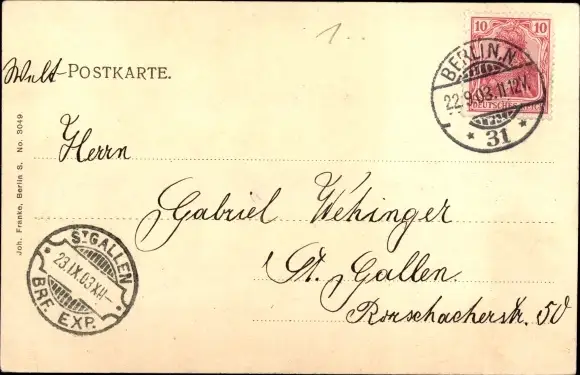 1..
10 10
DEUTSCHES REICH
BERLIN, N.
22.9.03.11-12V.
* 31 *
Welt-POSTKARTE.
Herrn
Gabriel Wehinger
St. Gallen.
Rorschacherstr. 50
ST GALLEN
23.IX.03.XII-
BRF. EXP.
Joh. Franke, Berlin S. No. 3049